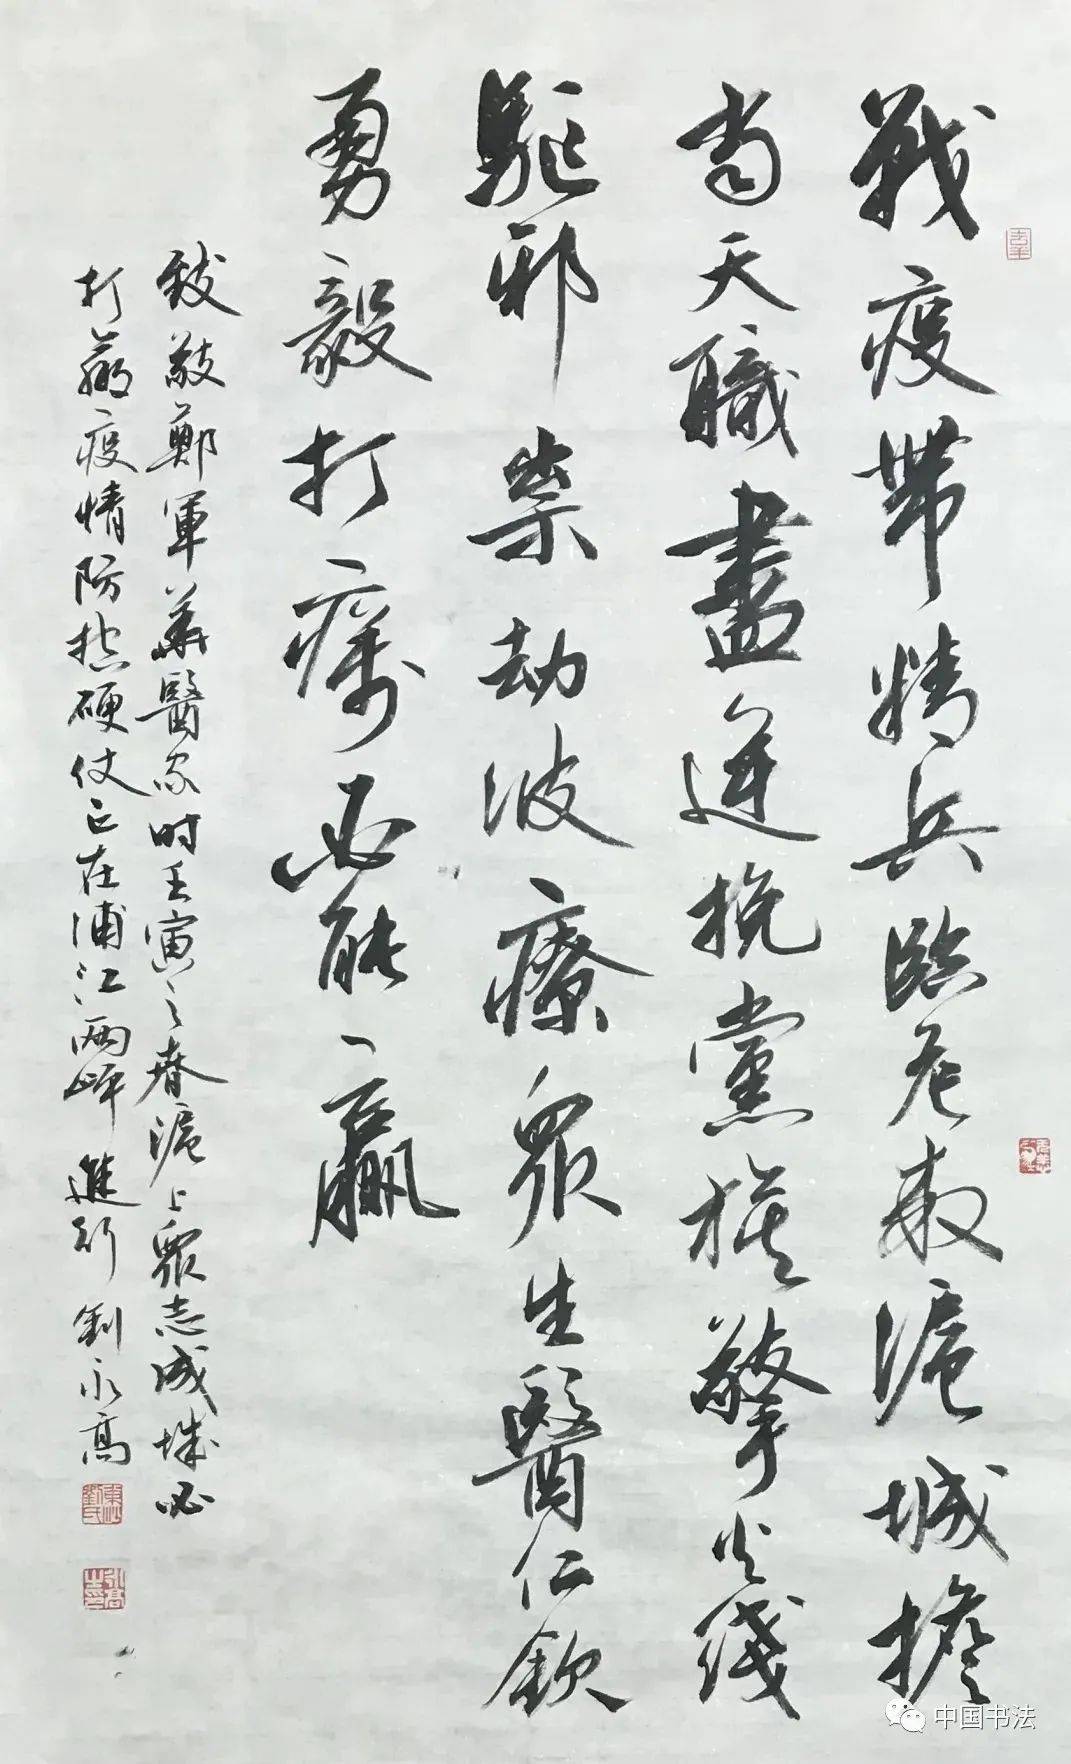 戰疫帶精兵臨危救滬城擔
當天職盡逆挽黨旗擎火线
驅邪祟劫波療眾生醫仁欽
勇毅打癘必能贏
致敬鄭軍華醫家时壬寅之春滬上眾志成城必
打赢疫情防控硬仗正在浦江两岸進行 劉永高
中国书法